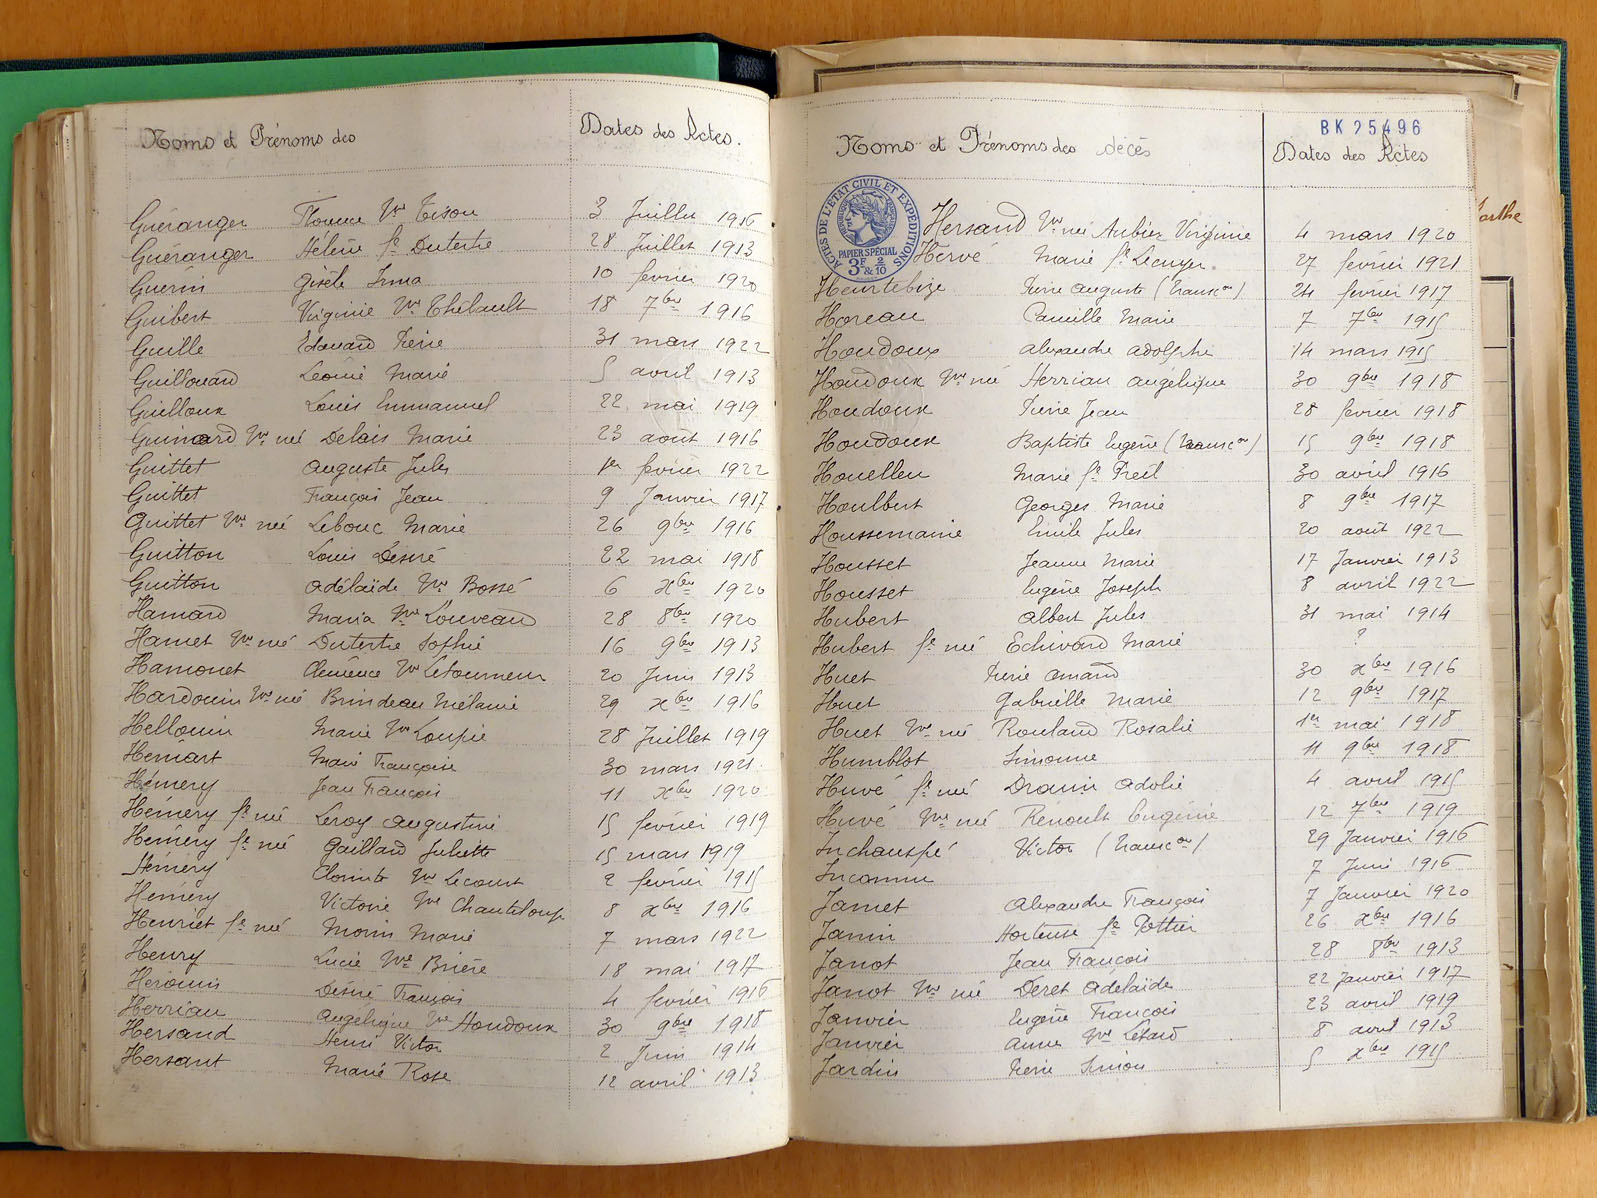 Noms et Prénoms des Dates des Actes.
Guéranger Florence Vve Tison 3 Juillet 1916
Guéranger Hélène fe Dutertre 28 Juillet 1913
Guérin Gisèle Irma 10 février 1920
Guibert Virginie Vve Thébault 18 7bre 1916
Guille Edouard Pierre 31 mars 1922
Guillouard Léonie Marie 5 avril 1913
Guilloux Louis Emmanuel 22 mai 1919
Guimard Vve née Delais Marie 23 août 1916
Guittet Auguste Jules 1er février 1922
Guittet François Jean 9 Janvier 1917
Guittet Vve née Lebouc Marie 26 9bre 1916
Guitton Louis Désiré 22 mai 1918
Guitton Adélaïde Vve Bossé 6 xbre 1920
Hamard Maria Vve Louveau 28 8bre 1920
Hamet Vve née Dutertre Sophie 16 9bre 1913
Hamonet Clémence Vve Letourneur 20 Juin 1913
Hardouin Vve née Brindeau Mélanie 29 xbre 1916
Hellouin Marie Vve Loupie 28 Juillet 1919
Hémart Marie Françoise 30 mars 1921
Hémery Jean François 11 xbre 1920
Hémery fe née Leroy Augustine 15 février 1919
Hémery fe née Gaillard Juliette 15 mars 1919
Hémery Clorinte Vve Lecourt 2 février 1915
Hémery Victorie Vve Chanteloup 8 xbre 1916
Henriet fe née Morin Marie 7 mars 1922
Henry Lucie Vve Brière 18 mai 1917
Hérouin Désiré François 4 février 1916
Herriau Angélique Vve Houdoux 30 9bre 1918
Hersand Henri Victor 2 Juin 1914
Hersant Marie Rose 12 avril 1913
BK 25496
Noms et Prénoms des décès Dates des Actes
ACTES DE L'ETAT CIVIL ET EXPEDITIONS
PAPIER SPÉCIAL
3F & 2/10
Hersand Vve née Aubier Virginie 4 mars 1920
Hervé Marie fe Lecuyer 27 février 1921
Heurtebize Pierre Auguste (Transcon) 24 février 1917
Horeau Camille Marie 7 7bre 1915
Houdoux Alexandre Adolphe 14 mars 1915
Houdoux Vve née Herriau Angélique 30 9bre 1918
Houdoux Pierre Jean 28 février 1918
Houdoux Baptiste Eugène (Transcon) 15 9bre 1918
Houelleu Marie fe Preil 30 avril 1916
Houlbert Georges Marie 8 9bre 1917
Houssemaine Emile Jules 20 août 1922
Housset Jeanne Marie 17 Janvier 1913
Housset Eugène Joseph 8 avril 1922
Hubert Albert Jules 31 mai 1914
Hubert fe née Echivard Marie ?
Huet Pierre Amand 30 xbre 1916
Huet Gabrielle Marie 12 9bre 1917
Huet Vve née Rouland Rosalie 1er mai 1918
Humblot Simonne 11 9bre 1918
Huvé fe née Drouin Adolie 4 avril 1915
Huvé Vve née Renoult Eugénie 12 7bre 1919
Inchauspé Victor (Transcon) 29 Janvier 1916
Inconnu 7 Juin 1916
Jamet Alexandre François 7 Janvier 1920
Jamin Hortense fe Pottier 26 xbre 1916
Janot Jean François 28 8bre 1913
Janot Vve née Déret Adélaïde 22 Janvier 1917
Janvier Eugène François 23 avril 1919
Janvier Anne Vve Létard 8 avril 1913
Jardin Pierre Simon 5 xbre 1915